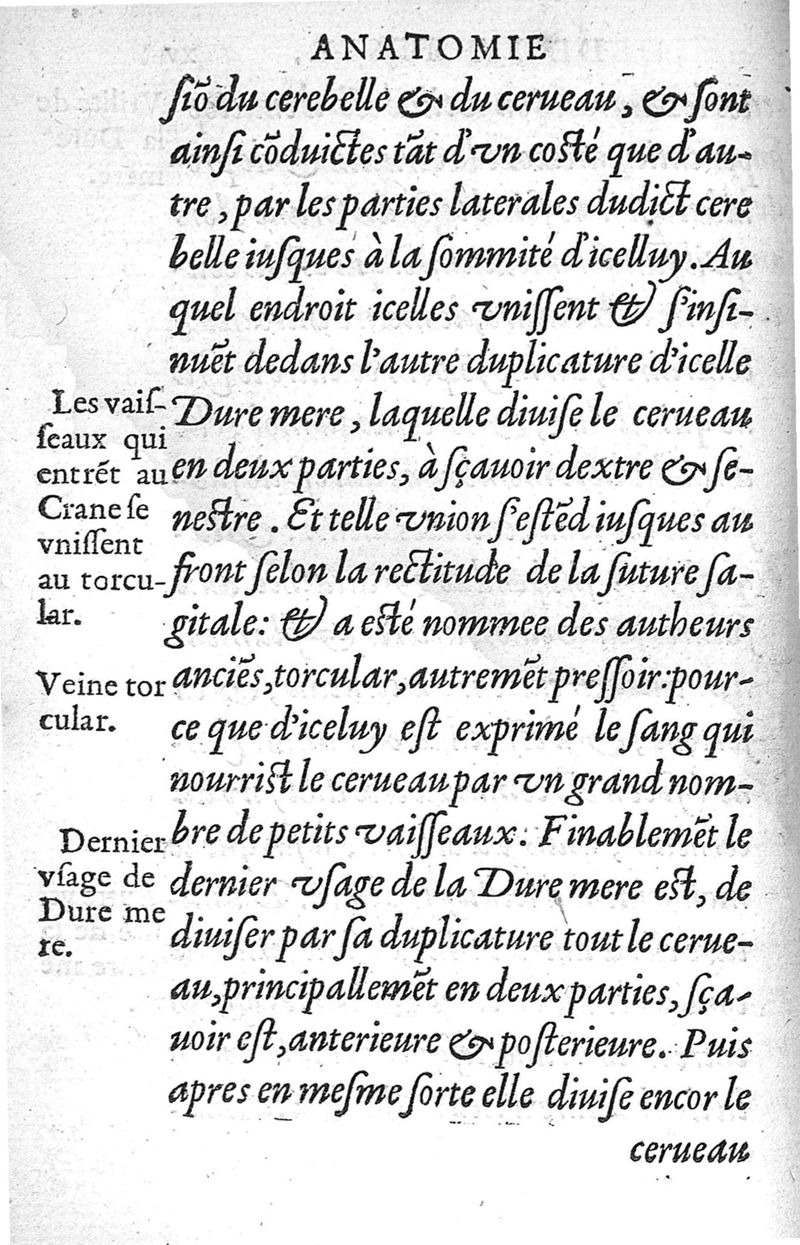 ANATOMIE
ſiõ du cerebelle & du cerueau, & ſont
ainſi cõduictes tãt d'vn coſté que d'au-
tre, par les parties laterales dudict cere
belle iuſques à la ſommité d'icelluy. Au
quel endroit icelles vniſſent & ſ'inſi-
nuẽt dedans l'autre duplicature d'icelle
Dure mere, laquelle diuiſe le cerueau
en deux parties, à ſçauoir dextre & ſe-
neſtre. Et telle vnion ſ'eſtẽd iuſques au
front ſelon la rectitude de la ſuture ſa-
gitale: & a eſté nommee des autheurs
anciẽs, torcular, autremẽt preſſoir: pour-
ce que d'iceluy eſt exprimé le ſang qui
nourriſt le cerueau par vn grand nom-
bre de petits vaiſſeaux. Finablemẽt le
dernier vſage de la Dure mere eſt, de
diuiſer par ſa duplicature tout le cerue-
au, principallemẽt en deux parties, ſça-
uoir eſt, anterieure & poſterieure. Puis
apres en meſme ſorte elle diuiſe encor le
cerueau
Les vaiſ-
ſeaux qui
entrẽt au
Crane ſe
vniſſent
au torcu-
lar.
Veine tor
cular.
Dernier
vſage de
Dure me
re.